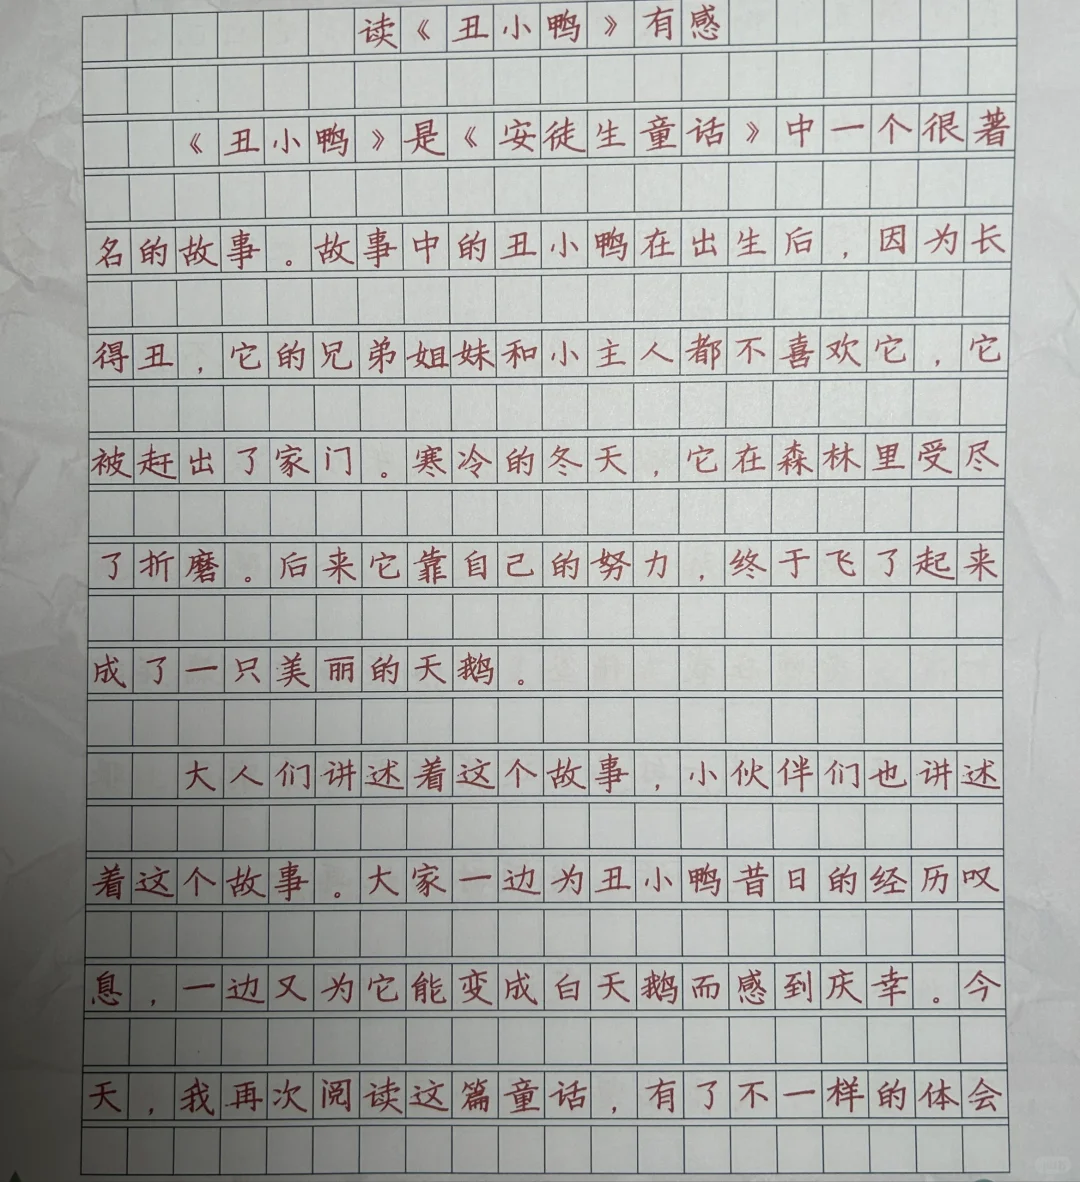 读《丑小鸭》有感
《丑小鸭》是《安徒生童话》中一个很著
名的故事。故事中的丑小鸭在出生后，因为长
得丑，它的兄弟姐妹和小主人都不喜欢它，它
被赶出了家门。寒冷的冬天，它在森林里受尽
了折磨。后来它靠自己的努力，终于飞了起来
成了一只美丽的天鹅。
大人们讲述着这个故事，小伙伴们也讲述
着这个故事。大家一边为丑小鸭昔日的经历叹
息，一边又为它能变成白天鹅而感到庆幸。今
天，我再次阅读这篇童话，有了不一样的体会